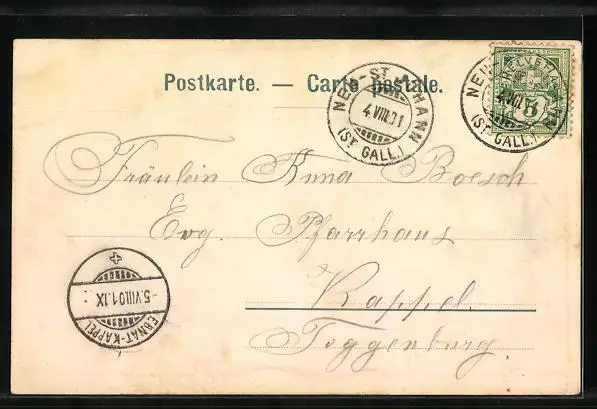 Postkarte. — Carte postale.
NEU-ST. JOHANN
4.VIII.01
(ST. GALL.)
HELVETIA
5
NEU-ST. JOHANN
4.VIII.01
(ST. GALL.)
Fräulein Anna Boesch
Evg. Pfarrhaus
Kappel
Toggenburg
-5.VIII.01.IX
EBNAT-KAPPEL